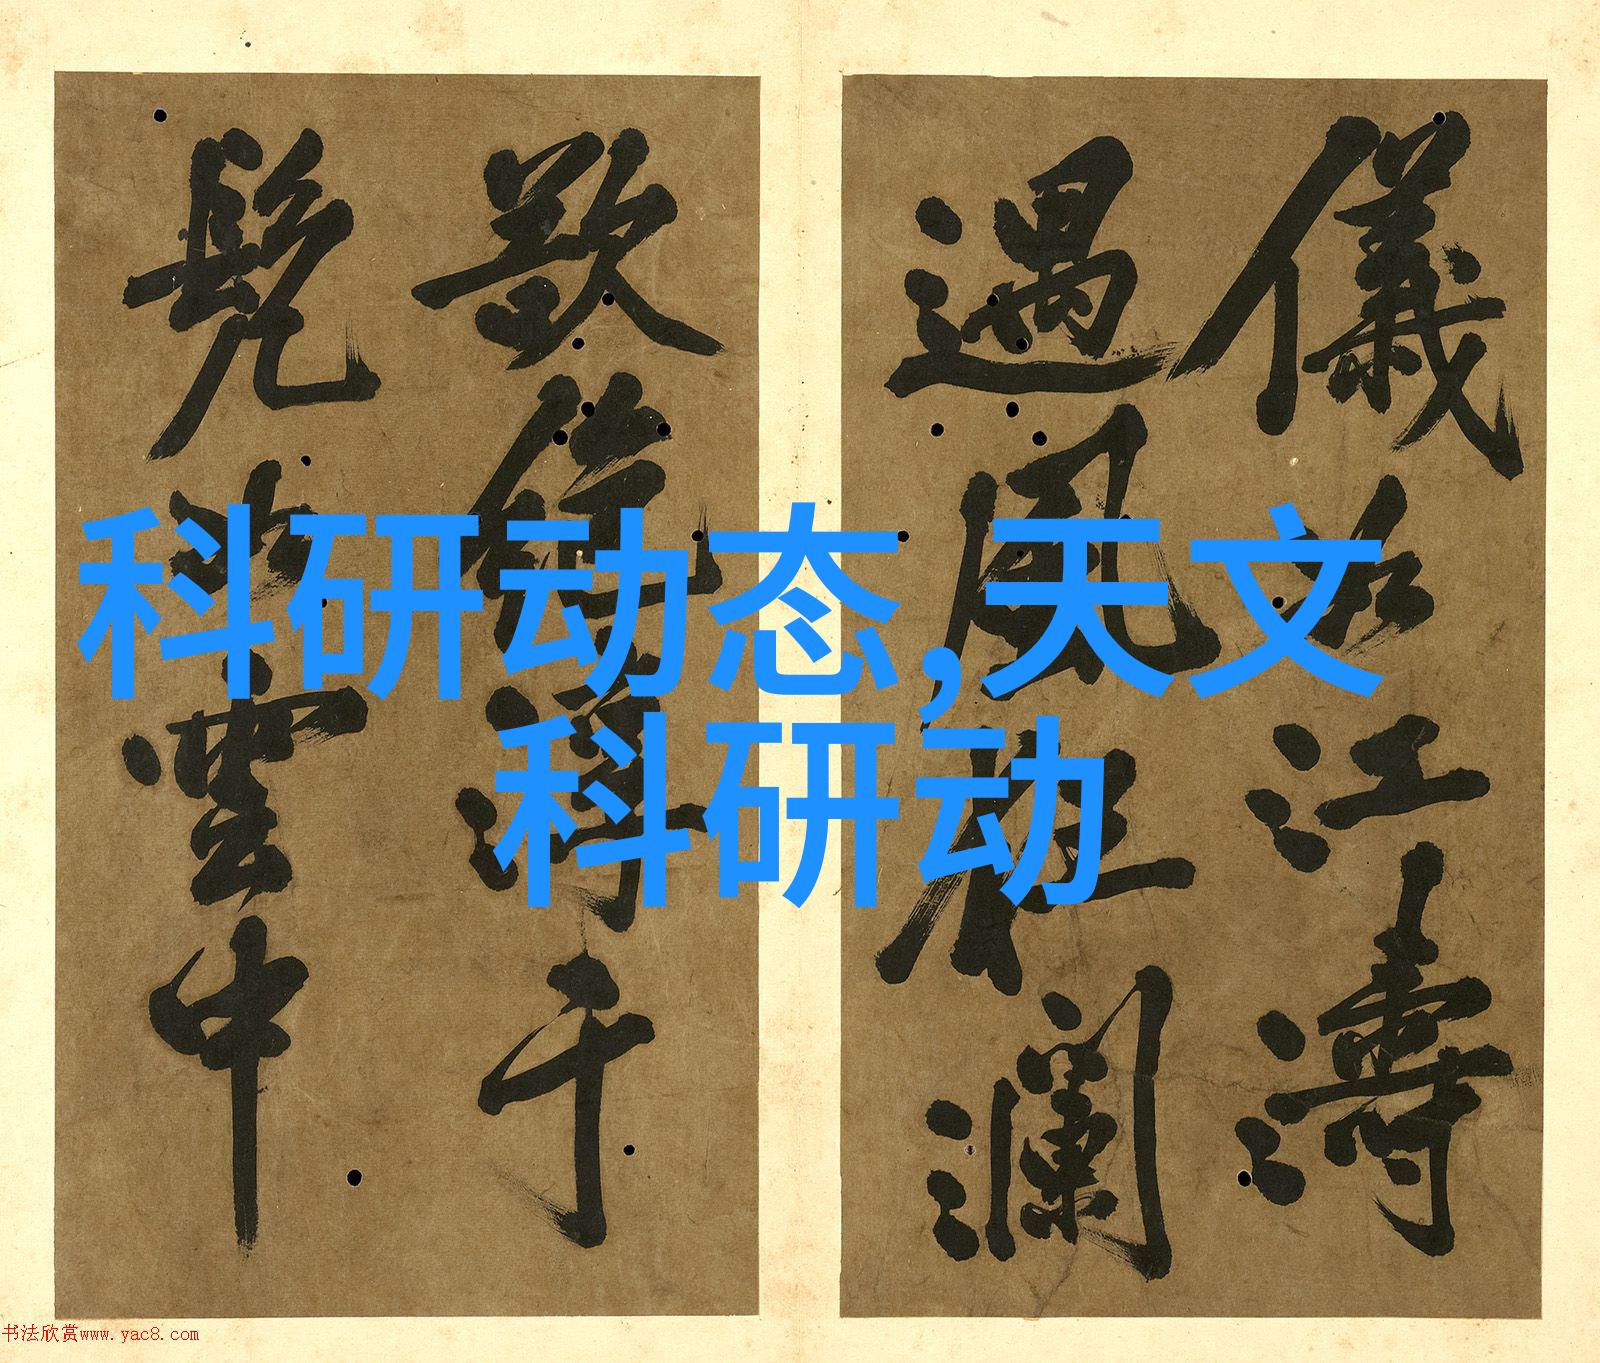 科研动态,天文
科研动
儀江濤
遇風狂瀾
浮于
雲中
书法欣赏www.yac8.com